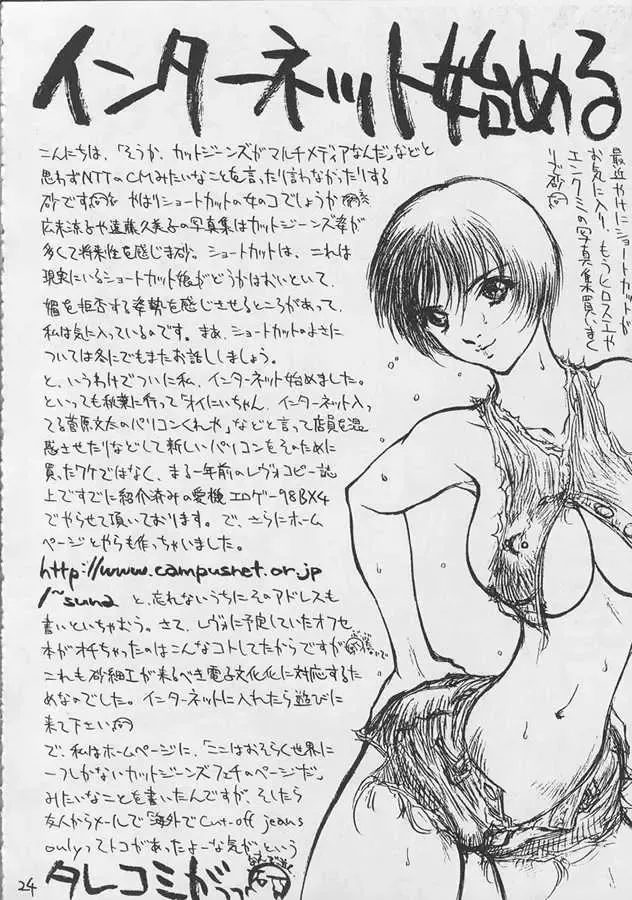 インターネット始める
こんにちは、「そうか、カットジーンズがマルチメディアなんだ」などと
思わずNTTのCMみたいなことを言ったり言わなかったりする
砂です やはりショートカットの女のコでしょうか
広末涼子や遠藤久美子の写真集はカットジーンズ姿が
多くて将来性を感じま砂。ショートカットは、これは
現実にいるショートカット娘がどうかはおいといて、
媚を拒否する姿勢を感じさせるところがあって、
私は気に入っているのです。まあ、ショートカットのよさに
ついては冬にでもまたお話ししましょう。
と、いうわけでついに私、インターネット始めました。
といっても秋葉に行って「オイにいちゃん、インターネット入っ
てる菅原文太のパソコンくれや」などと言って店員を混
惑させたりなどして新しいパソコンをそのために
買ったワケではなく、まる一年前のレヴォコピー誌
上ですでに紹介済みの愛機エロゲー98BX4
でやらせて頂いております。で、さらにホーム
ページとやらも作っちゃいました。
http://www.campusnet.or.jp
/~suna と、忘れないうちにそのアドレスも
書いといちゃおう。さて、レヴォに予定していたオフセ
本がオチちゃったのはこんなコトしてたからですが
これも砂細工が来るべき電子文化化に対応するた
めなのでした。インターネットに入れたら遊びに
来て下さい
で、私はホームページに、「ここはおそらく世界に
一つしかないカットジーンズフェチのページだ」
みたいなことを書いたんですが、そしたら
友人からメールで「海外でcut-off jeans
onlyってトコがあったよーな気が」という
タレコミがっっ
最近やけにショートカットが
お気に入り、もうヒロスエや
エンクミの写真集買いまく
りで砂
24